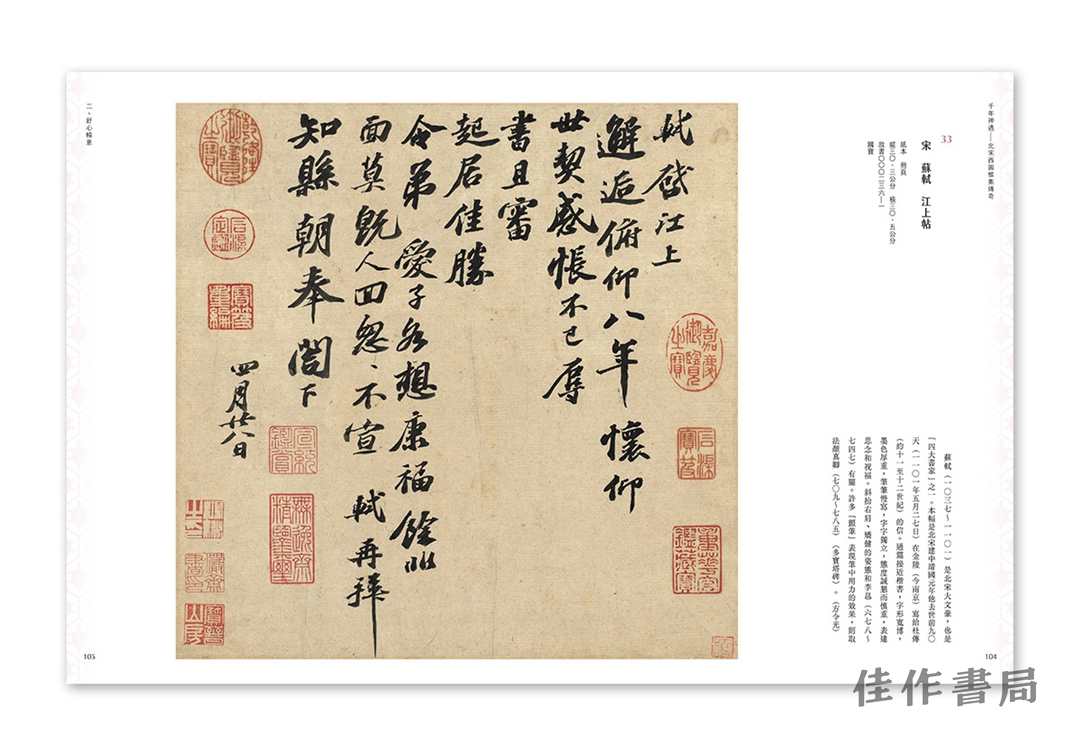 千年神遇—北宋西園雅集傳奇
33
宋 蘇軾 江上帖
紙本 冊頁
縱三〇.三公分 橫三〇.五公分
故書〇〇〇二三六—一
國寶
蘇軾(一〇三七~一一〇一)是北宋大文豪,也是
「四大書家」之一。本幅是北宋建中靖國元年他去世前九〇
天(一一〇一年五月二七日)在金陵(今南京)寫給杜傳
(約十一至十二世紀)的信。通篇接近楷書,字形寬博,
墨色厚重,筆筆慢寫,字字獨立,態度誠懇而慎重,表達
思念和祝福。斜抬右肩、矯健的姿態和李邕(六七八~
七四七)有關。許多「顫筆」表現筆中用力的效果,則取
法顏真卿(七〇九~七八五)〈多寶塔碑〉。(方令光)
104
軾啟江上
邂逅俯仰八年懷仰
世契感悵不已辱
書且審
起居佳勝
令弟愛子各想康福餘非
面莫既人回忽〻不宣軾再拜
知縣朝奉閣下
四月廿八日
嘉慶御覽之寶
石渠寶笈
重華宮鑑藏寶
乾隆御覽之寶
石渠定鑑
寶笈重編
宣統鑑賞
無逸齋精鑒璽
二、舒心暢意
105
佳作書局